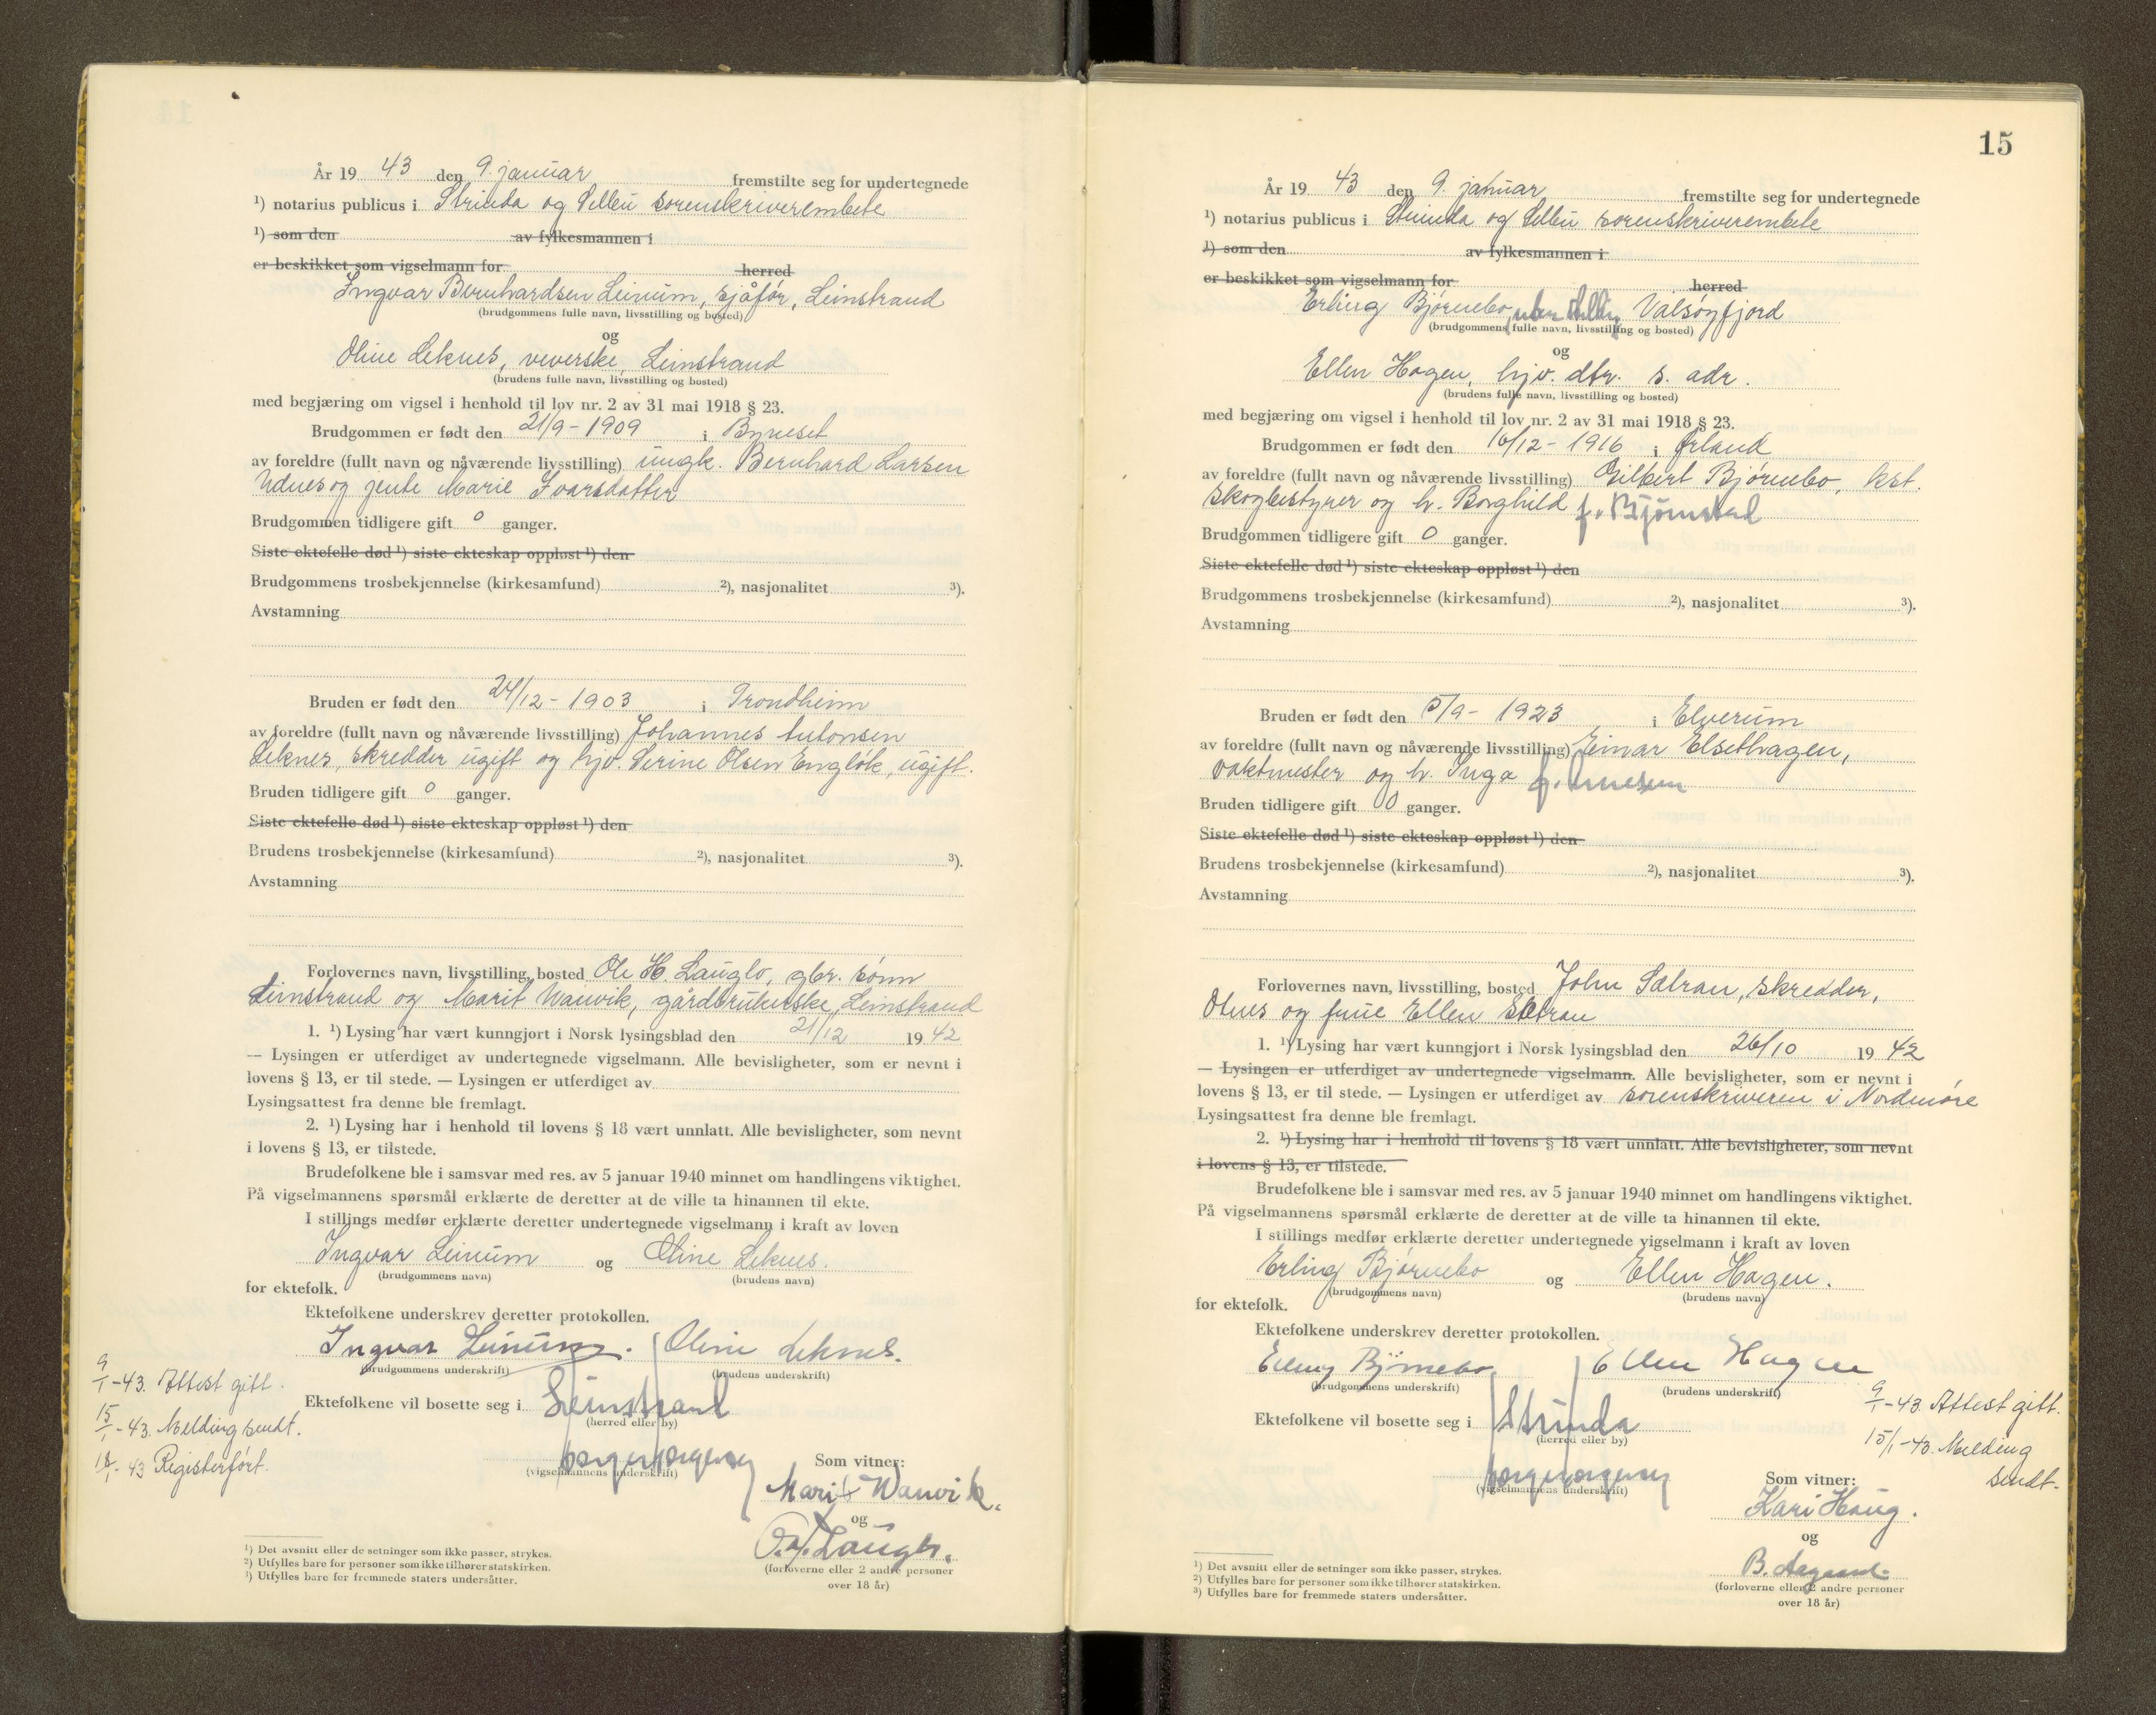 År 19 43 den 9. januar fremstilte seg for undertegnede
¹) notarius publicus i Strinda og Selbu sorenskriverembete
¹) som den av fylkesmannen i
er beskikket som vigselmann for herred
Ingvar Bernhardsen Leinum, sjåfør, Leinstrand
(brudgommens fulle navn, livsstilling og bosted)
og
Oline Leknes, veverske, Leinstrand
(brudens fulle navn, livsstilling og bosted)
med begjæring om vigsel i henhold til lov nr. 2 av 31 mai 1918 § 23.
Brudgommen er født den 21/9 - 1909 i Byneset
av foreldre (fullt navn og nåværende livsstilling) ungk. Bernhard Larsen
Udnes og jente Marie Ivarsdatter
Brudgommen tidligere gift 0 ganger.
Siste ektefelle død ¹) siste ekteskap oppløst ¹) den
Brudgommens trosbekjennelse (kirkesamfund) ²), nasjonalitet ³).
Avstamning
Bruden er født den 24/12 - 1903 i Trondheim
av foreldre (fullt navn og nåværende livsstilling) Johannes Antonsen
Leknes, skredder ugift og hjv. Serine Olsen Engløk, ugift.
Bruden tidligere gift 0 ganger.
Siste ektefelle død ¹) siste ekteskap oppløst ¹) den
Brudens trosbekjennelse (kirkesamfund) ²), nasjonalitet ³).
Avstamning
Forlovernes navn, livsstilling, bosted Ole H. Lauglo, gbr. sønn
Leinstrand og Marit Wanvik, gårdbrukerske, Leinstrand
1. ¹) Lysing har vært kunngjort i Norsk lysingsblad den 21/12 19 42
— Lysingen er utferdiget av undertegnede vigselmann. Alle bevisligheter, som er nevnt i
lovens § 13, er til stede. — Lysingen er utferdiget av
Lysingsattest fra denne ble fremlagt.
2. ¹) Lysing har i henhold til lovens § 18 vært unnlatt. Alle bevisligheter, som nevnt
i lovens § 13, er tilstede.
Brudefolkene ble i samsvar med res. av 5 januar 1940 minnet om handlingens viktighet.
På vigselmannens spørsmål erklærte de deretter at de ville ta hinannen til ekte.
I stillings medfør erklærte deretter undertegnede vigselmann i kraft av loven
Ingvar Leinum og Oline Leknes.
(brudgommens navn) (brudens navn)
for ektefolk.
Ektefolkene underskrev deretter protokollen.
Ingvar Leinum. Oline Leknes.
(brudgommens underskrift) (brudens underskrift)
9/1-43. Attest gitt.
Ektefolkene vil bosette seg i Leinstrand
(herred eller by)
15/1-43. Melding sendt.
18/1-43 Registerført.
(vigselmannens underskrift)
Som vitner:
Marit Wanvik.
og
O. H. Lauglo.
(forloverne eller 2 andre personer
over 18 år)
¹) Det avsnitt eller de setninger som ikke passer, strykes.
²) Utfylles bare for personer som ikke tilhører statskirken.
³) Utfylles bare for fremmede staters undersåtter.
15
År 19 43 den 9. januar fremstilte seg for undertegnede
¹) notarius publicus i Strinda og Selbu sorenskriverembete
¹) som den av fylkesmannen i
er beskikket som vigselmann for herred
Erling Bjørnebo, uten stilling Valsøyfjord
(brudgommens fulle navn, livsstilling og bosted)
og
Ellen Hagen, hjv. dtr. s. adr.
(brudens fulle navn, livsstilling og bosted)
med begjæring om vigsel i henhold til lov nr. 2 av 31 mai 1918 § 23.
Brudgommen er født den 16/12 - 1916 i Ørland
av foreldre (fullt navn og nåværende livsstilling) Gilbert Bjørnebo, kst.
skogbestyrer og h. Borghild f. Bjørnstad
Brudgommen tidligere gift 0 ganger.
Siste ektefelle død ¹) siste ekteskap oppløst ¹) den
Brudgommens trosbekjennelse (kirkesamfund) ²), nasjonalitet ³).
Avstamning
Bruden er født den 5/9 - 1923 i Elverum
av foreldre (fullt navn og nåværende livsstilling) Einar Elsethagen,
vaktmester og h. Inga f. Arnesen
Bruden tidligere gift 0 ganger.
Siste ektefelle død ¹) siste ekteskap oppløst ¹) den
Brudens trosbekjennelse (kirkesamfund) ²), nasjonalitet ³).
Avstamning
Forlovernes navn, livsstilling, bosted John Sætran, skredder,
Otnes og frue Ellen Sætran
1. ¹) Lysing har vært kunngjort i Norsk lysingsblad den 26/10 19 42
— Lysingen er utferdiget av undertegnede vigselmann. Alle bevisligheter, som er nevnt i
lovens § 13, er til stede. — Lysingen er utferdiget av sorenskriveren i Nordmøre
Lysingsattest fra denne ble fremlagt.
2. ¹) Lysing har i henhold til lovens § 18 vært unnlatt. Alle bevisligheter, som nevnt
i lovens § 13, er tilstede.
Brudefolkene ble i samsvar med res. av 5 januar 1940 minnet om handlingens viktighet.
På vigselmannens spørsmål erklærte de deretter at de ville ta hinannen til ekte.
I stillings medfør erklærte deretter undertegnede vigselmann i kraft av loven
Erling Bjørnebo og Ellen Hagen.
(brudgommens navn) (brudens navn)
for ektefolk.
Ektefolkene underskrev deretter protokollen.
Erling Bjørnebo Ellen Hagen
(brudgommens underskrift) (brudens underskrift)
9/1-43. Attest gitt.
Ektefolkene vil bosette seg i Strinda
(herred eller by)
15/1-43. Melding
sendt.
(vigselmannens underskrift)
Som vitner:
Kari Haug.
og
B. Aagaard.
(forloverne eller 2 andre personer
over 18 år)
¹) Det avsnitt eller de setninger som ikke passer, strykes.
²) Utfylles bare for personer som ikke tilhører statskirken.
³) Utfylles bare for fremmede staters undersåtter.